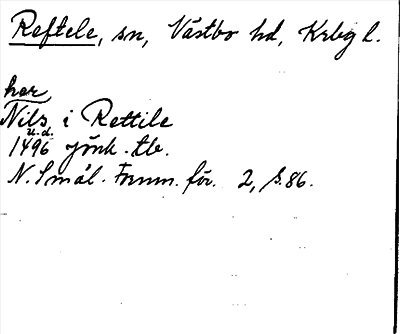 Reftele, sn, Västbo hd, Krbg l.
her
Nils i Rettile
u.d.
1496 Jönk. tb.
N. Smål. Fornm. för. 2, s. 86.